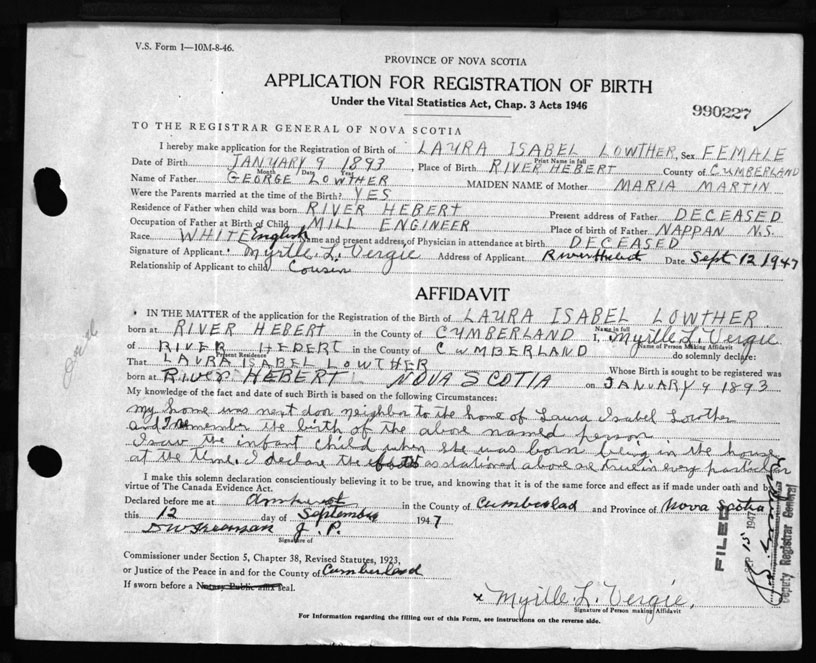 V.S. Form 1—10M-8-46.
PROVINCE OF NOVA SCOTIA
APPLICATION FOR REGISTRATION OF BIRTH
Under the Vital Statistics Act, Chap. 3 Acts 1946
990227
TO THE REGISTRAR GENERAL OF NOVA SCOTIA
I hereby make application for the Registration of Birth of LAURA ISABEL LOWTHER, Sex FEMALE
Print Name in full
Date of Birth JANUARY 9 1893, Place of Birth RIVER HEBERT County of CUMBERLAND
Month Date Year
Name of Father GEORGE LOWTHER MAIDEN NAME of Mother MARIA MARTIN
Were the Parents married at the time of the Birth? YES
Residence of Father when child was born RIVER HEBERT Present address of Father DECEASED
Occupation of Father at Birth of Child MILL ENGINEER Place of birth of Father NAPPAN N.S.
Race WHITE English Name and present address of Physician in attendance at birth DECEASED
Signature of Applicant Myrtle L. Vergie Address of Applicant River Hebert Date Sept 12 1947
Relationship of Applicant to child Cousin
AFFIDAVIT
IN THE MATTER of the application for the Registration of the Birth of LAURA ISABEL LOWTHER
Name in full
born at RIVER HEBERT in the County of CUMBERLAND I, Myrtle L. Vergie
Name of Person Making Affidavit
of RIVER HEBERT in the County of CUMBERLAND do solemnly declare:
Present Residence
That LAURA ISABEL LOWTHER Whose Birth is sought to be registered was
born at RIVER HEBERT NOVA SCOTIA on JANUARY 9 1893
My knowledge of the fact and date of such Birth is based on the following Circumstances:
my home was next door neighbor to the home of Laura Isabel Lowther
and I remember the birth of the above named person
I saw the infant child when she was born being in the house
at the time. I declare the as stationed above are true in every particular
I make this solemn declaration conscientiously believing it to be true, and knowing that it is of the same force and effect as if made under oath and by
virtue of The Canada Evidence Act.
Declared before me at Amherst in the County of Cumberlad and Province of Nova Scotia
this 12 day of September 1947
D W Freeman J. P.
Signature of
Commissioner under Section 5, Chapter 38, Revised Statutes, 1923,
or Justice of the Peace in and for the County of Cumberland
If sworn before a Notary Public affix seal.
x Myrtle L. Vergie,
Signature of Person making Affidavit
For Information regarding the filling out of this Form, see instructions on the reverse side.
FILED
SEP 15 1947
Deputy Registrar General